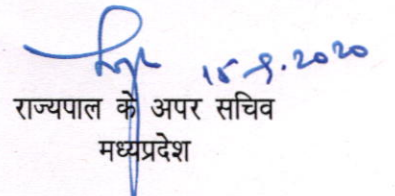 15.9.2020
राज्यपाल के अपर सचिव
मध्यप्रदेश